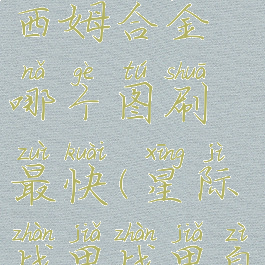 西姆合金
nǎ gè tú shuā
哪个图刷
zuì kuài xīng jì
最快(星际
zhàn jiǎ zhàn jiǎ zì
战甲战甲自